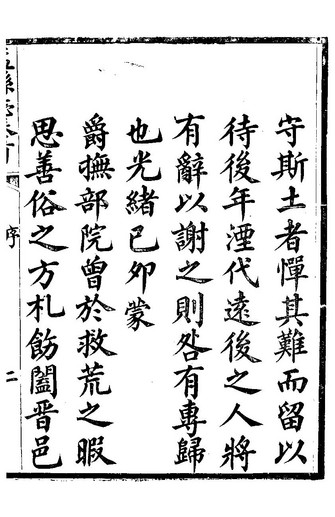 守斯土者憚其難而留以
待後年湮代遠後之人將
有辭以謝之則咎有專歸
也光緒己卯蒙
爵撫部院曾於救荒之暇
思善俗之方札飭闔晉邑
序
二